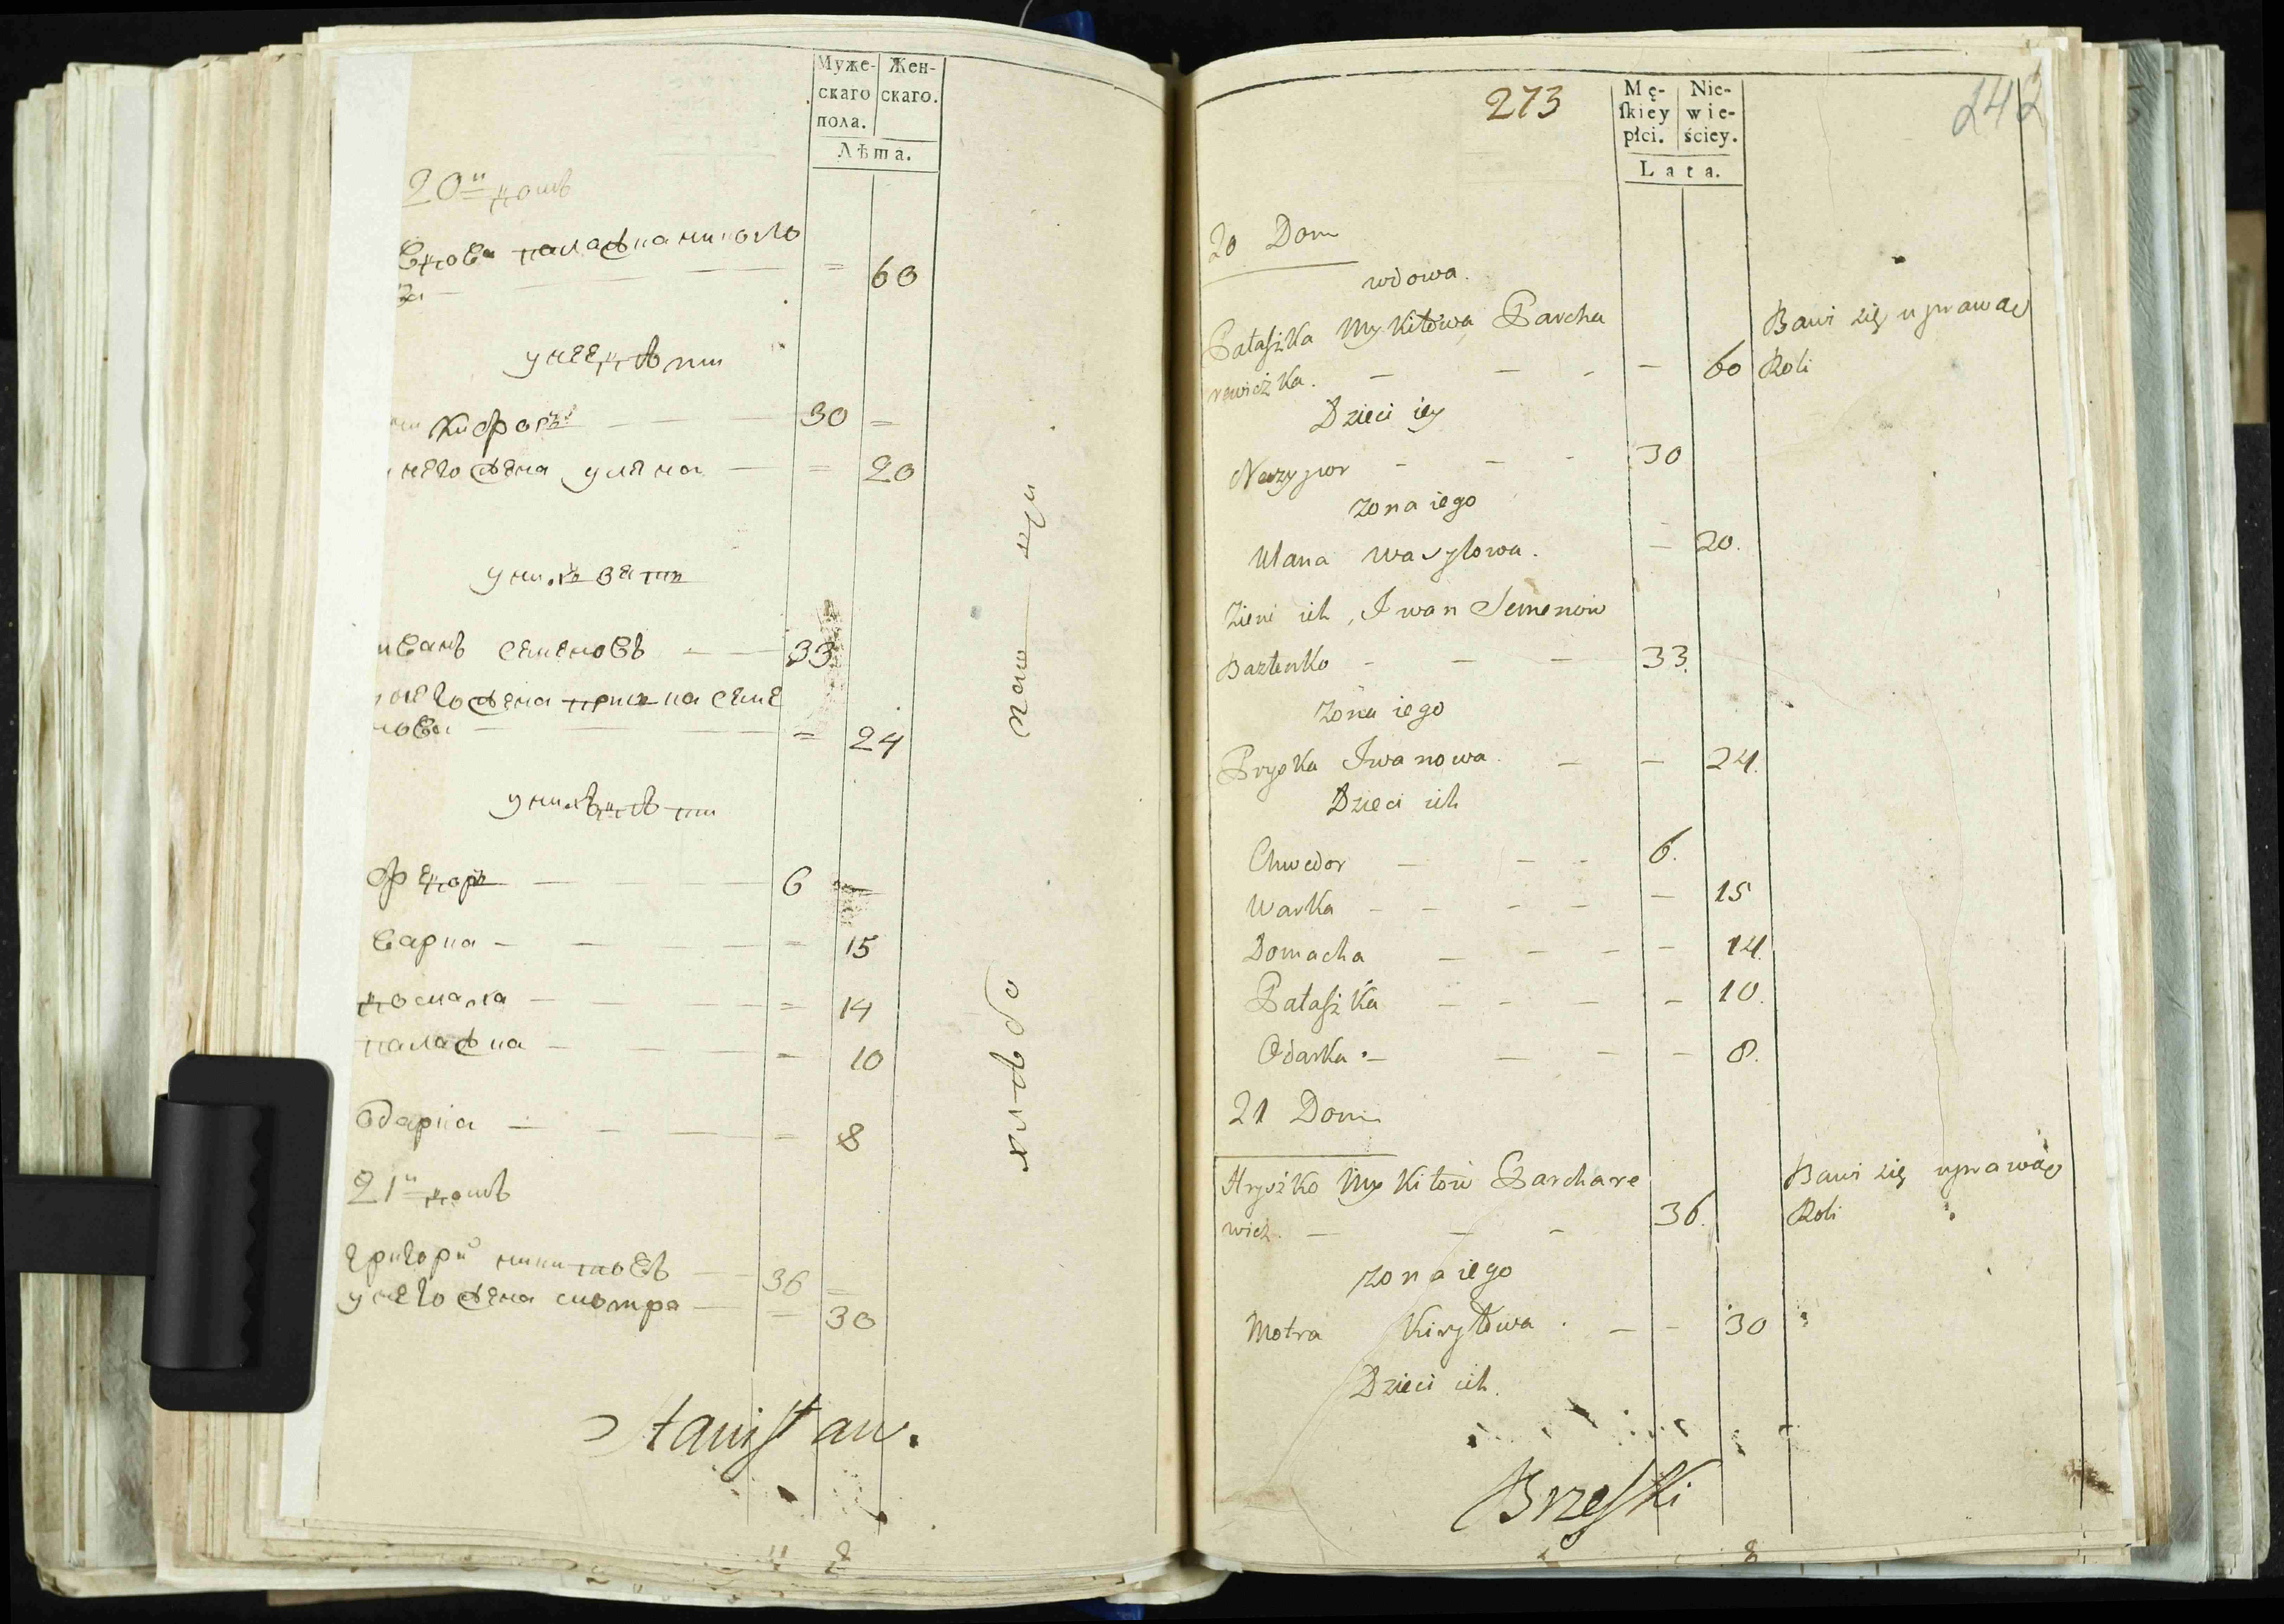 Муже- Жен-
скаго скаго.
пола.
Лѣта.
20й домъ
вдова палажка никито
ва 60
унее дѣти
никифоръ 30
унего жена уляна 20
унихъ зять
иванъ семеновъ 33
унего жена приска семе
нова 24
унихъ дѣти
федоръ 6
варка 15
домаха 14
палажка 10
одарка 8
21й домъ
григорий никитовъ 36
унего жена мотра 30
Stanisław.
273
242
Mę- Nie-
skiey wie-
płci. ściey.
Lata.
20 Dom
wdowa.
Pałaszka Mykitowa Parcha
rewiczka. 60
Bawi się uprawą
Roli
Dzieci iey
Neczypor 30
zona iego
Ulana Wasylowa. 20.
Zieńć ich, Iwan Semenow
Baztenko 33.
Zona iego
Pryska Iwanowa. 24.
Dzieci ich
Chwedor 6.
Warka 15
Domacha 14.
Pałaszka 10.
Odarka 8.
21 Dom
Hryszko Mykitow Parchare
wicz. 36.
Bawi się uprawą
Roli
zona iego
Motra Kiryłowa. 30
Dzieci ich.
Brzeski